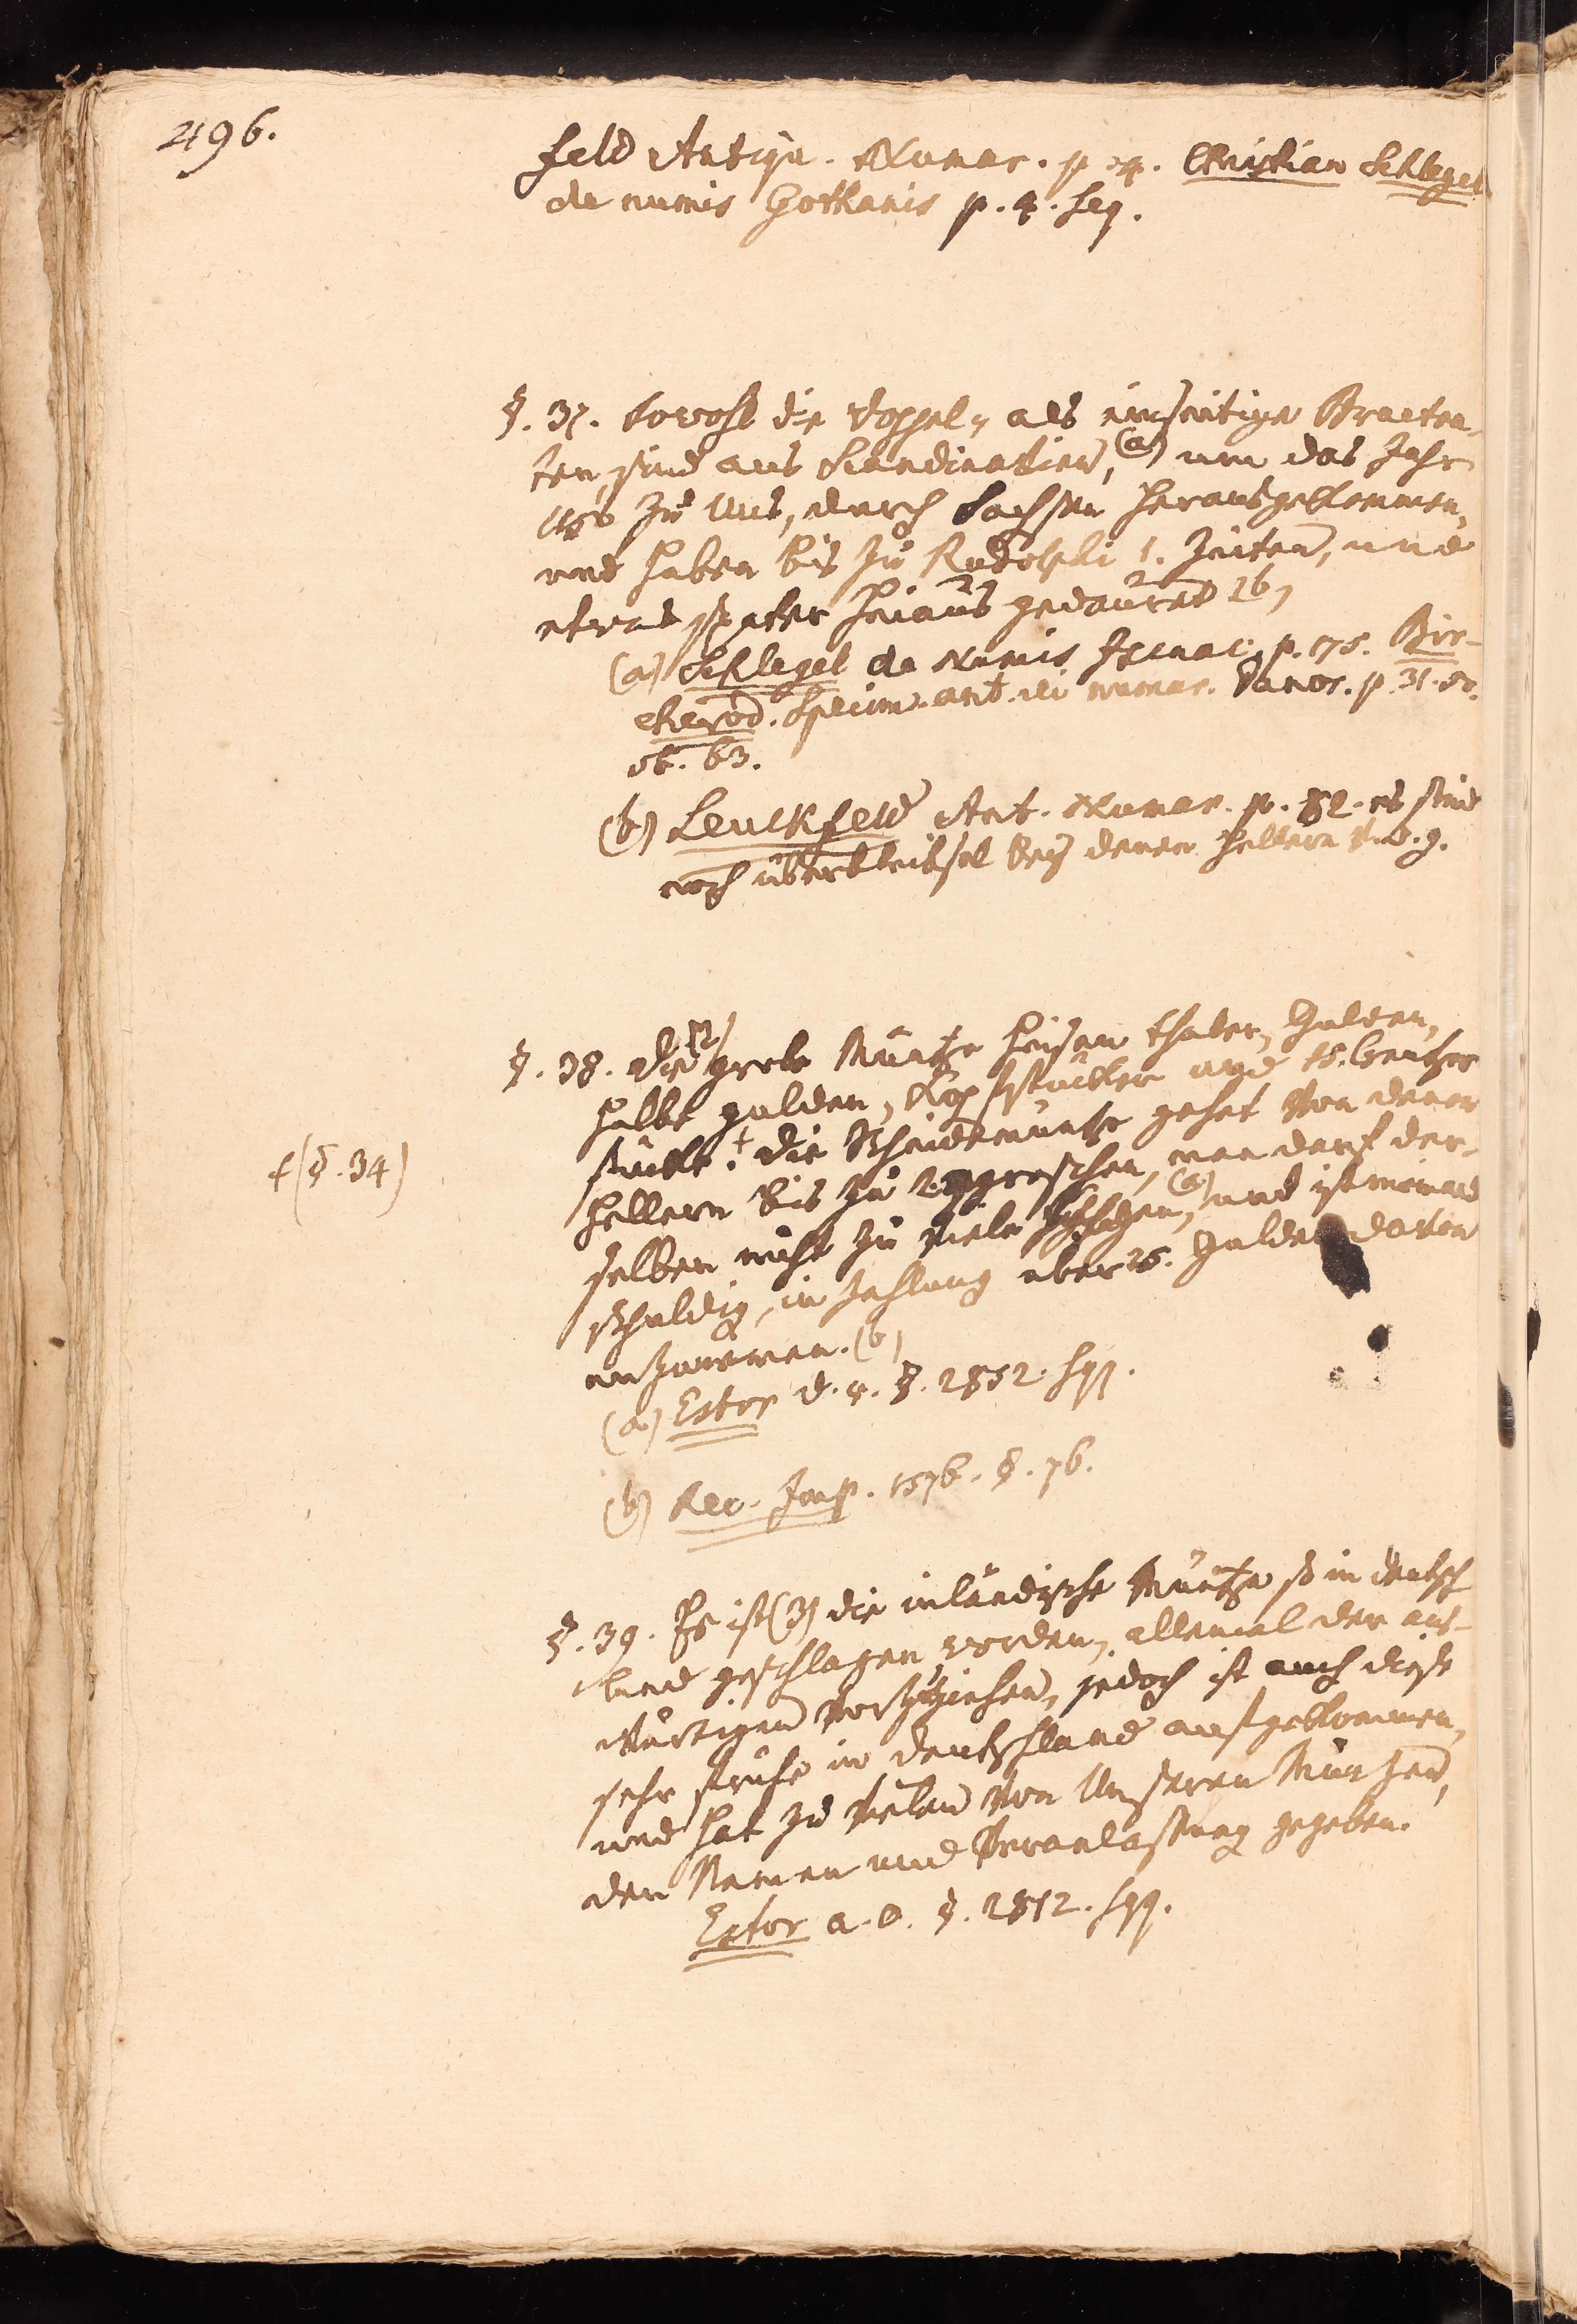 496.
feld Antiqu. Numar. p. 74. Christian Schlegel
de numis Gothanis p. 4. seq.
§. 37. Sowohl die doppel- als einseitige Bractea-
ten, sind aus Scandinavien, (a) um das Jahr
zu uns, durch Sachsen herausgekommen,
und haben bis zu Rudolphi 1. Zeiten, und
etwas später hinaus gedauret (b)
(a) Schlegel de Numis Isenac. p. 175. Bir-
cherod. Specim. ant. rei numar. Danor. p. 31. 50.
56. 63.
(b) Leuckfeld Ant. Numar. p. 82. es sind
noch überbleibsel bey denen hellern
§. 38. die (2) grobe Müntze heisen thaler, Gulden,
halbe gulden, Kopfstücker und 15. Creutzer
stücke. † die Scheidemüntze gehet von denen
f (§. 34)
hellern bis zu groschen, man darf der-
selben nicht zu viele schlagen, (a) und ist niemand
schuldig, in Zahlung über 25. Gulden davon
anzunemen. (b)
(a) Estor d. a. §. 2852. sqq.
(b) Rec. Imp. 1576. §. 76.
§. 39. Es ist (3) die inländische Müntze so in deutsch
land geschlagen worden, allemal der aus-
wärtigen vorzuziehen, jedoch ist auch diese
sehr frühe in deutschland aufgekommen,
und hat zu vielen von unseren Müntzen,
den Namen und Veranlassung gegeben.
Estor a. O. §. 2812. sqq.